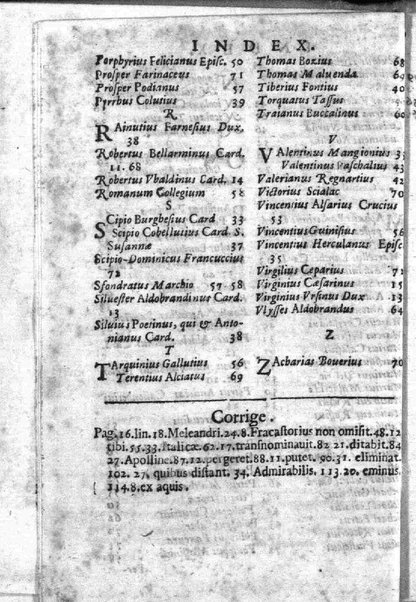 INDEX.
Porphyrius Felicianus Episc. 50
Prosper Farinaceus 71
Prosper Podianus 57
Pyrrbus Colutius 39
R
RAinutius Farnesius Dux.
38
Robertus Bellarminus Card.
11. 68
Robertus Vbaldinus Card. 14
Romanum Collegium 58
S
SCipio Burghesius Card 33
Scipio Cobellutius Card. S.
Susannæ 37
Scipio-Dominicus Francuccius
72
Sfondratus Marchio 57 58
Siluester Aldobrandinus Card.
13
Siluius Poetinus, qui & Anto-
nianus Card. 38
T
TArquinius Gallutius 56
Terentius Alciatus 69
Thomas Bozius 68
Thomas Maluenda
Tiberius Fontius 40
Torquatus Tassus
Traianus Buccalinus 60
V
VAlentinus Mangionius 33
Valentinus Paschalius 43
Valerianus Regnartius 42
Victorius Scialac 70
Vincentius Alsarius Crucius
53
Vincentius Guinisius 56
Vincentius Herculanus Episc
35
Virgilius Ceparius 71
Virginius Cæsarinus 15
Virginius Vrsinus Dux 13
Vlysses Aldobrandus 64
Z
ZAcharias Bouerius 70
Corrige.
Pag. 16. lin. 18. Meleandri. 24. 8. Fracastorius non omisit. 48. 12
tibi. 55. 33. Italicæ. 62. 17. transnominauit. 82 21. ditabit. 84
27. Apolline. 87. 12. pergeret. 88. 11. putet. 90. 31. eliminat.
102. 27. quibus distant. 34. Admirabilis. 113. 20. eminus
114. 8. ex aquis.